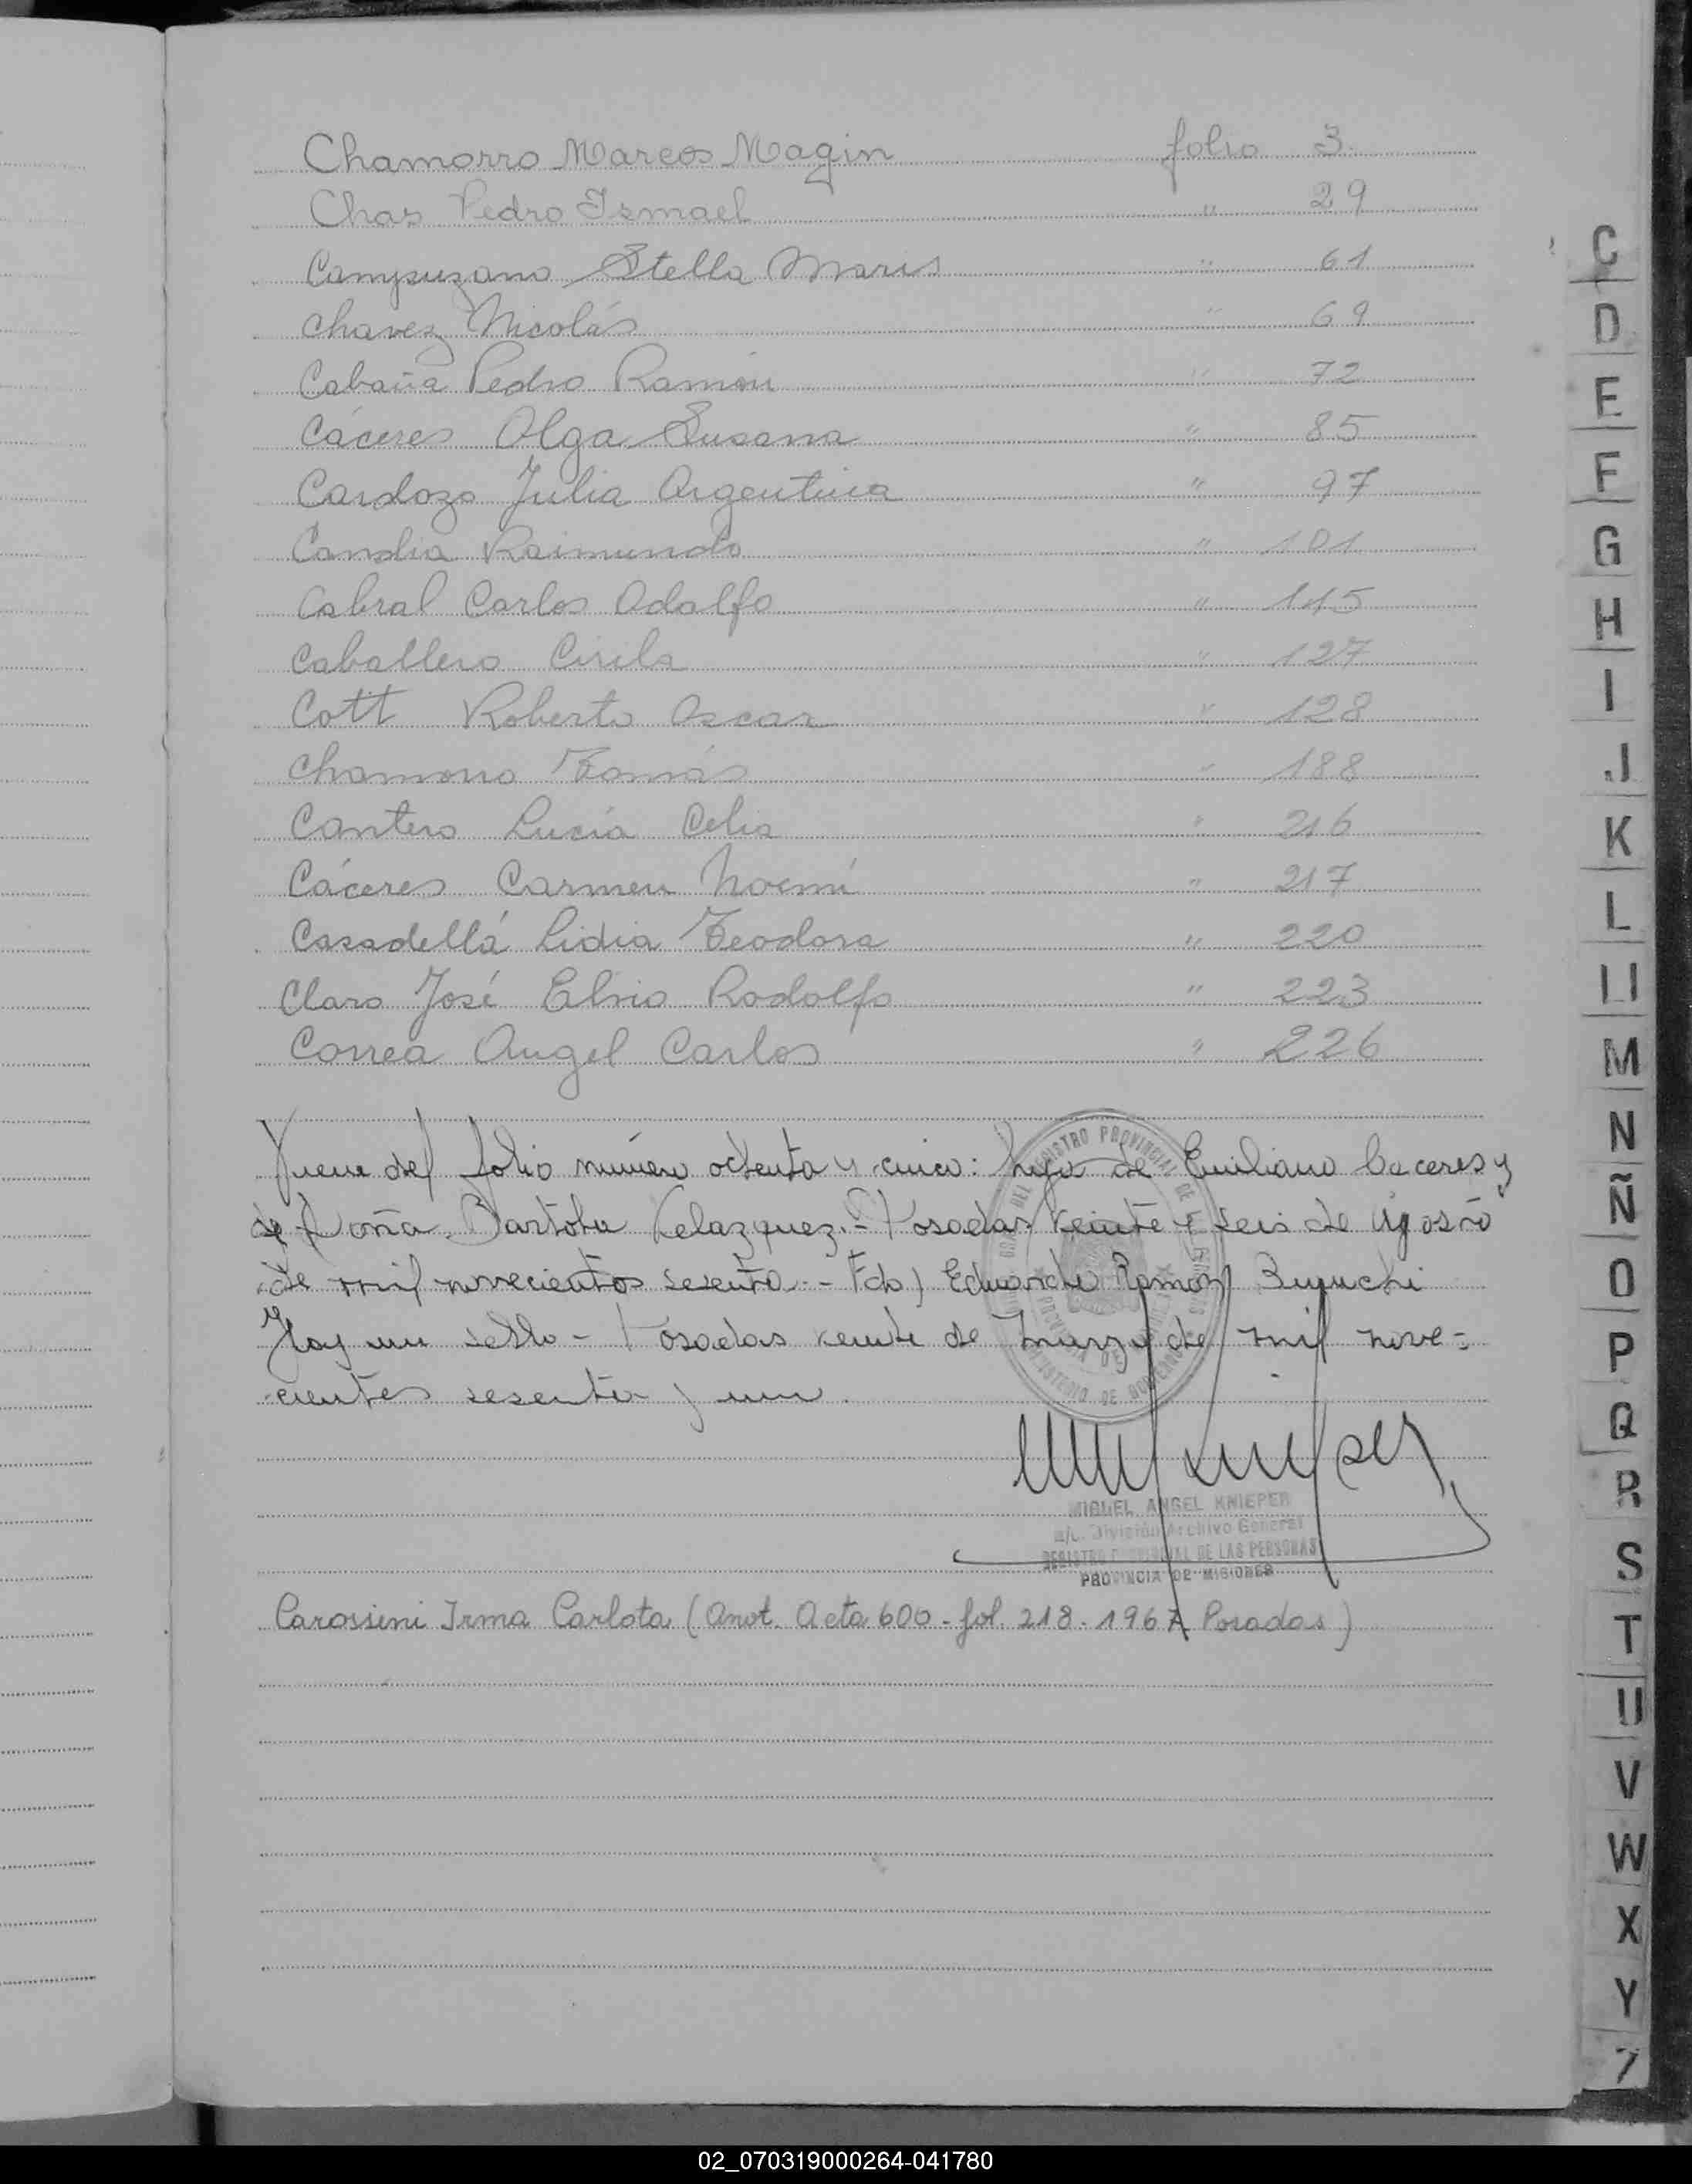 Chamorro Marcos Magin folio 3
Chas Pedro Ismael " 29
Campuzano Stella Maris " 61
Chavez Nicolás " 69
Cabaña Pedro Ramón " 72
Cáceres Olga Susana " 85
Cardozo Julia Argentina " 97
Candia Raimundo " 101
Cabral Carlos Adolfo " 115
Caballero Cirila " 127
Cott Roberto Oscar " 128
Chamorro Tomás " 188
Cantero Lucía Celia " 216
Cáceres Carmen Noemí " 217
Casadellá Lidia Teodora " 220
Claro José Elvio Rodolfo " 223
Correa Angel Carlos " 226
Viene del folio número ochenta y cinco: hija de Emiliano Caceres y
de Doña Bartola Velazquez.- Posadas veinte y seis de Agosto
de mil novecientos sesenta.- Fdo) Eduardo Ramon
Hay un sello - Posadas veinte de marzo de mil nove-
cientos sesenta y uno.
MIGUEL ANGEL KNIEPER
a/c. División Archivo General
REGISTRO PROVINCIAL DE LAS PERSONAS
PROVINCIA DE MISIONES
Carossini Irma Carlota (Anot. Acta 600 - fol. 218 - 1967 Posadas)
C
D
E
F
G
H
I
J
K
L
Ll
M
N
Ñ
O
P
Q
R
S
T
U
V
W
X
Y
Z
02_070319000264-041780